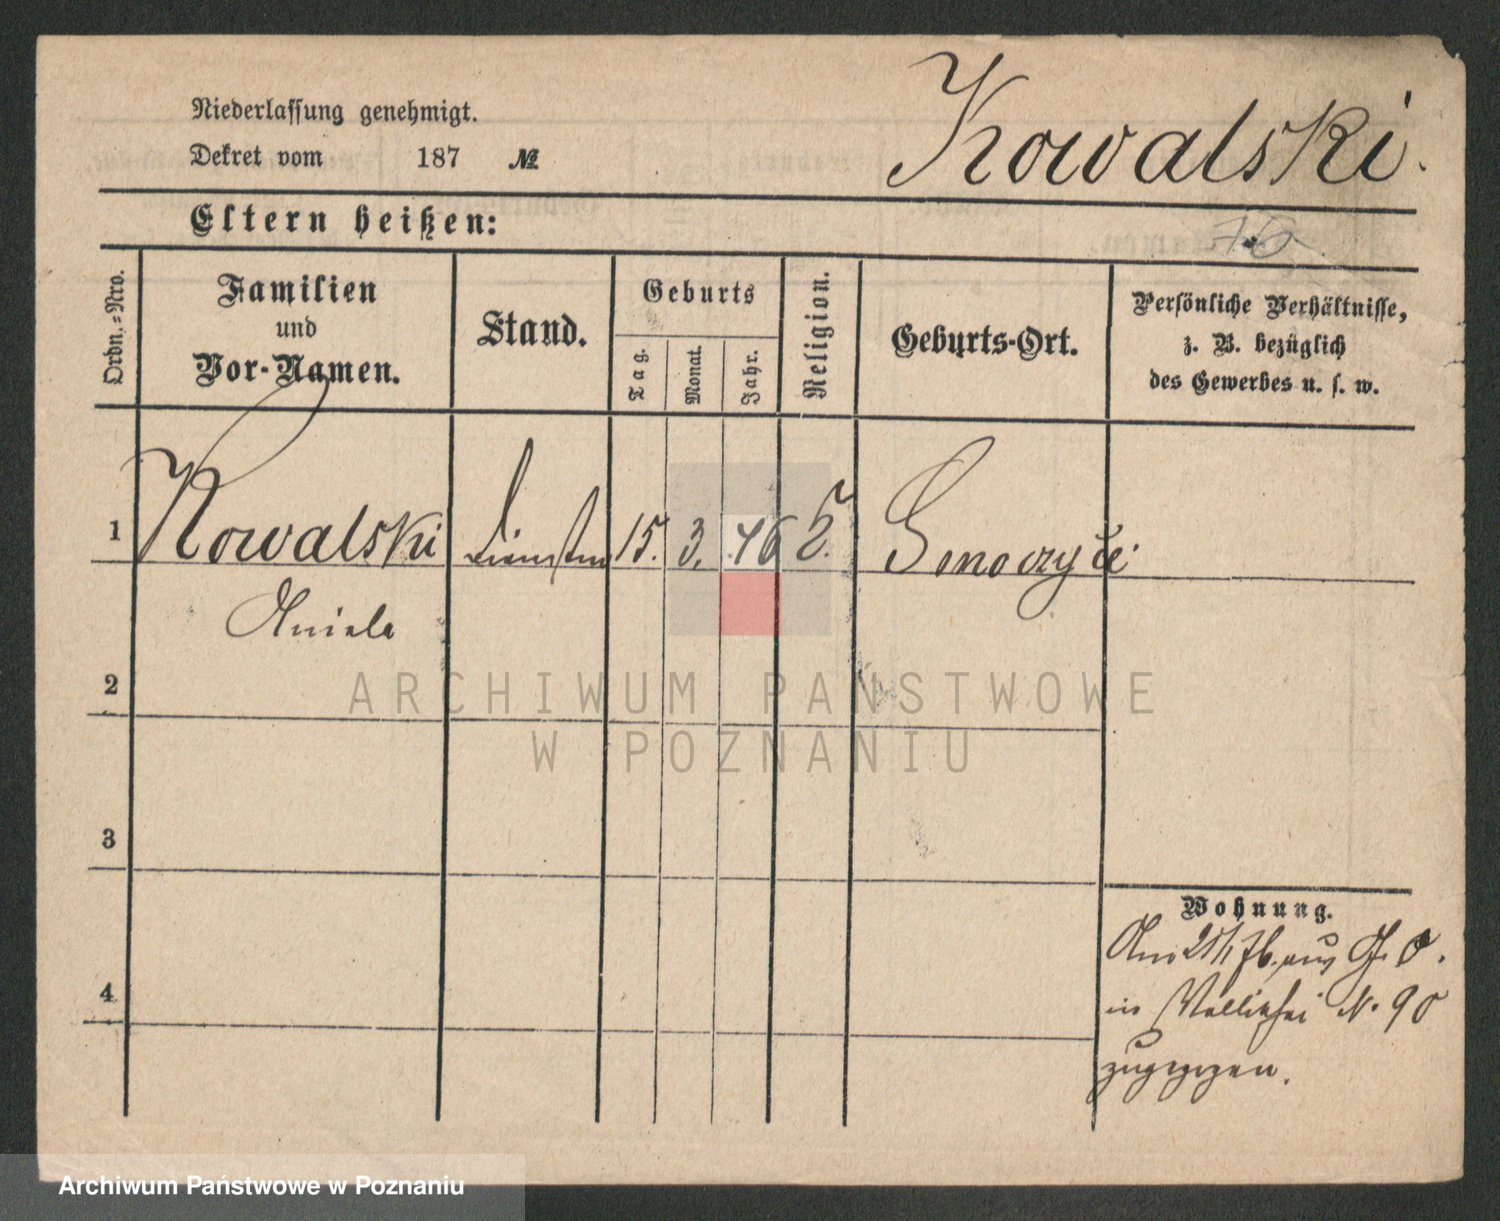 Kowalski.
Niederlassung genehmigt.
Dekret vom 187 №
Eltern heißen:
76
Ordn.-Nro.
Familien
und
Vor-Namen.
Stand.
Geburts
Tag.
Monat.
Jahr.
Religion.
Geburts-Ort.
Persönliche Verhältnisse,
z. B. bezüglich
des Gewerbes u. s. w.
1 Kowalski 15. 3. 46
Aniela
2
ARCHIWUM PAŃSTWOWE
W POZNANIU
3
Wohnung.
Am aus
4
in Wallischei N. 90
zugezogen.
Archiwum Państwowe w Poznaniu